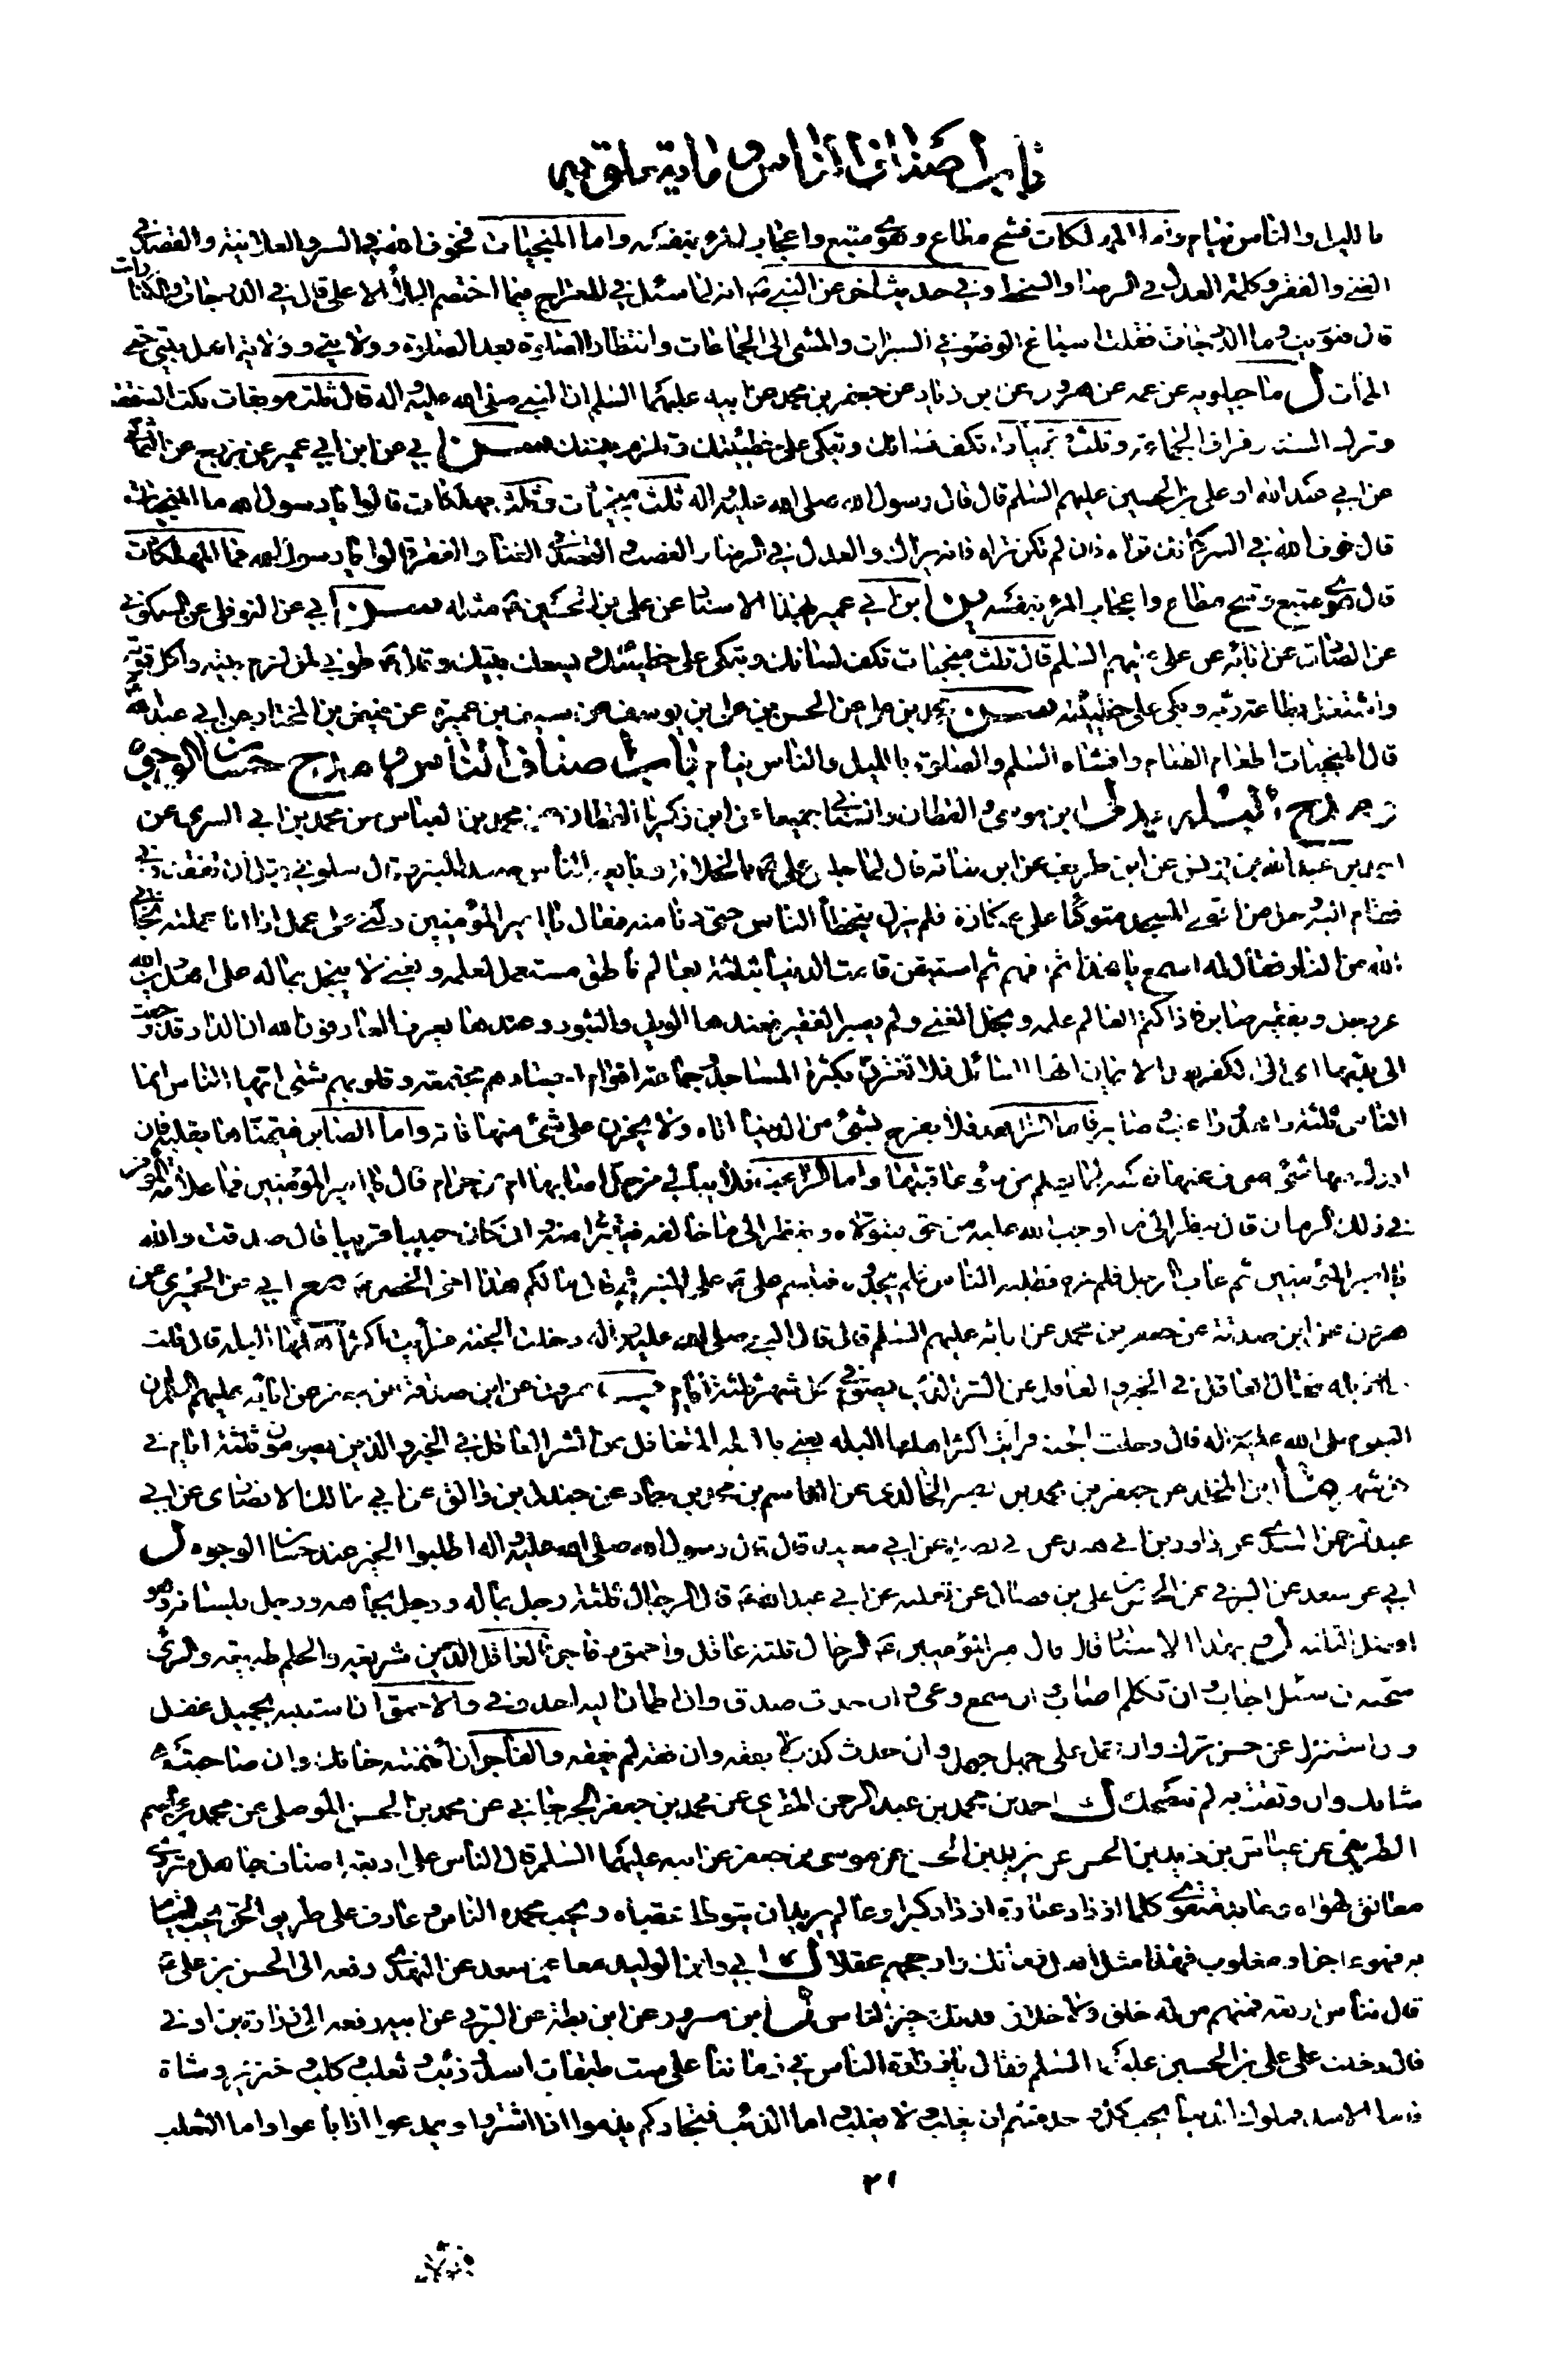 باب اصناف الناس و
بالليل والناس نيام واما المهلكات فشح مطاع وهوى متبع واعجاب المرء بنفسه واما المنجيات فخوف الله في السر والعلانية والقصد في
الغنى والفقر وكلمة العدل في الرضا والسخط وفي حديث اخر عن النبي ص انه لما سئل في المعراج فيما اختصم الملأ الاعلى قال في الدرجات والكفارات
قال فنوديت وما الدرجات فقلت اسباغ الوضوء في السبرات والمشي الى الجماعات وانتظار الصلوة بعد الصلوة وولايتي وولاية اهل بيتي حتى
الممات ل ماجيلويه عن عمه عن هرون عن ابن زياد عن جعفر بن محمد عن ابيه عليهما السلم ان النبي صلى الله عليه واله قال ثلث موبقات نكث الصفقة
وترك السنة وفراق الجماعة وثلث منجيات تكف لسانك وتبكي على خطيئتك وتلزم بيتك سن ابي عن ابن ابي عمير عن بزيع عن الثمالي
عن ابي عبد الله او علي بن الحسين عليهم السلم قال قال رسول الله صلى الله عليه واله ثلث منجيات وثلث مهلكات قالوا يا رسول الله ما المنجيات
قال خوف الله في السر كانك تراه فان لم تكن تراه فانه يراك والعدل في الرضا والغضب والقصد في الغناء والفقر قالوا يا رسول الله فما المهلكات
قال هوى متبع وشح مطاع واعجاب المرء بنفسه سن ابن ابي عمير بهذا الاسناد عن علي بن الحسين ع مثله سن ابي عن النوفلي عن السكوني
عن الصادق عن ابائه عن علي عليهم السلم قال ثلث منجيات تكف لسانك وتبكي على خطيئتك ويسعك بيتك وقال ع طوبى لمن لزم بيته واكل قوته
واشتغل بطاعة ربه وبكى على خطيئته سن عن الحسن بن علي بن يوسف عن سيف بن عميرة عن فيض بن المختار عن ابي عبد الله
قال المنجيات اطعام الطعام وافشاء السلم والصلوة بالليل والناس نيام باب اصناف الناس و مدح حسان الوجوه
و مدح البله ابن موسى والقطان والسناني جميعا عن ابن زكريا القطان عن محمد بن العباس عن محمد بن ابي السري عن
احمد بن عبد الله بن يونس عن ابن طريف عن ابن نباته قال لما جلس علي ع في الخلافة وبايعه الناس صعد المنبر وقال سلوني قبل ان تفقدوني
فقام اليه رجل من اقصى المسجد متوكئا على عكازة فلم يزل يتخطأ الناس حتى دنا منه فقال يا امير المؤمنين دلني على عمل اذا انا عملته نجاني
الله من النار فقال له اسمع يا هذا ثم افهم ثم استيقن قامت الدنيا بثلثة بعالم ناطق مستعمل لعلمه وبغني لا يبخل بماله على اهل دين الله
عز وجل وبفقير صابر فاذا كتم العالم علمه وبخل الغني ولم يصبر الفقير فعندها الويل والثبور وعندها يعرف العارفون بالله ان الدار قد رجعت
الى بدئها اى الى الكفر بعد الايمان ايها السائل فلا تغترن بكثرة المساجد وجماعة اقوام اجسادهم مجتمعة وقلوبهم شتى ايها الناس انما
الناس ثلثة زاهد وراغب وصابر فاما الزاهد فلا يفرح بشئ من الدنيا اتاه ولا يحزن على شئ منها فاته واما الصابر فيتمناها بقلبه فان
ادرك منها شئ صرف عنها نفسه لما يعلم من سوء عاقبتها واما الراغب فلا يبالي من حل اصابها ام من حرام قال يا امير المؤمنين فما علامة المؤمن
في ذلك الزمان قال ينظر الى ما اوجب الله عليه من حق فيتولاه وينظر الى ما خالفه فيتبرأ منه وان كان حبيبا قريبا قال صدقت والله
يا امير المؤمنين ثم غاب الرجل فلم نره فطلبه الناس فلم يجدوه فتبسم علي ع على المنبر ثم قال ما لكم هذا اخى الخضر ع مع ابي عن الحميري عن
هرون عن ابن صدقة عن جعفر بن محمد عن ابائه عليهم السلم قال قال النبي صلى الله عليه واله دخلت الجنة فرأيت اكثر اهلها البله قال قلت
ما البله فقال العاقل في الخير والغافل عن الشر الذي يصوم في كل شهر ثلثة ايام هرون عن ابن صدقة عن جعفر عن ابائه عليهم السلم ان
النبي صلى الله عليه واله قال دخلت الجنة فرأيت اكثر اهلها البله يعني بالبله المتغافل عن الشر العاقل في الخير والذين يصومون ثلثة ايام في
كل شهر عن جعفر بن محمد بن نصير الخالدي عن القاسم بن محمد بن حماد عن جندل بن والق عن ابي مالك الانصاري عن ابي
عبد الرحمن السدي عن داود بن ابي هند عن ابي نضرة عن ابي سعيد قال قال رسول الله صلى الله عليه واله اطلبوا الخير عند حسان الوجوه ل
ابي عن سعد عن البرقي عن الحسن بن علي بن فضال عن ثعلبة عن ابي عبد الله ع قال الرجال ثلثة رجل بماله ورجل بجاهه ورجل بلسانه وهو
افضل الثلثة ل بهذا الاسناد قال قال امير المؤمنين ع الرجال ثلثة عاقل واحمق وفاجر فالعاقل الدين شريعته والحلم طبيعته والرأى
سجيته ان سئل اجاب وان تكلم اصاب وان سمع وعى وان حدث صدق وان اطمان اليه احد وفى والاحمق ان استنبه بجميل غفل
وان استنزل عن حسن ترك وان حمل على جهل جهل وان حدث كذب لا يفقه وان فقه لم يفقه والفاجر ان أئتمنته خانك وان صاحبته
شانك وان وثقت به لم ينصحك ل احمد بن محمد بن عبد الرحمن المقري عن محمد بن جعفر الجرجاني عن محمد بن الحسن الموصلي عن محمد بن عاصم
الطريفي عن عياش بن زيد بن الحسن عن يزيد بن الحسن عن موسى بن جعفر عن ابيه عليهما السلم قال الناس على اربعة اصناف جاهل متردى
معانق لهواه وعابد متقوى كلما ازداد عبادة ازداد كبرا وعالم يريد ان يتوطا عقباه ويحب محمدة الناس وعارف على طريق الحق يحب القيام
به فهو عاجز او مغلوب فهذا امثل اهل زمانك وارجحهم عقلا ل ابي وابن الوليد معا عن سعد عن النهدي رفعه الى الحسن بن علي ع
قال الناس اربعة فمنهم من له خلق ولا خلاق له ابن مسرور عن ابن بطة عن البرقي عن ابيه رفعه الى زرارة بن اوفى
قال دخلت على علي بن الحسين عليهما السلم فقال يا زرارة الناس في زماننا على ست طبقات اسد وذئب وثعلب وكلب وخنزير وشاة
فاما الاسد فملوك الدنيا يحب كل واحد منهم ان يغلب ولا يغلب واما الذئب فتجاركم يذموا اذا اشتروا ويمدحوا اذا باعوا واما الثعلب
٢١